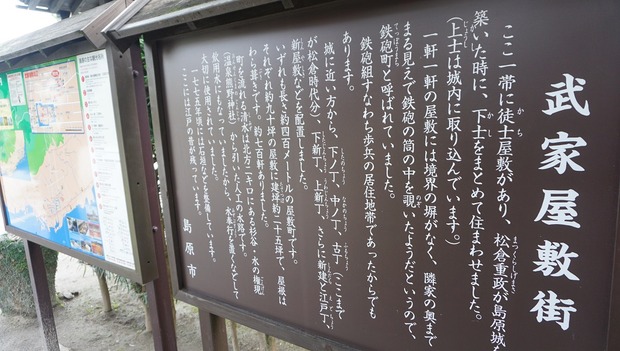 武家屋敷街
ここ一帯に徒士屋敷があり、松倉重政が島原城を
築いた時に、下士をまとめて住まわせました。
(上士は城内に取り込んでいます。)
一軒一軒の屋敷には境界の塀がなく、隣家の奥まで
まる見えで鉄砲の筒の中を覗いたようだというので、
鉄砲町と呼ばれていました。
鉄砲組すなわち歩兵の居住地帯であったからでも
あります。
城に近い方から、下ノ丁、中ノ丁、古丁(ここまで
が松倉時代分)、下新丁、上新丁、さらに新建と江戸丁、
新屋敷などを配置しました。
いずれも長さ約四百メートルの屋敷町です。
それぞれ約九十坪の屋敷に建坪約二十五坪で、屋根は
わら葺きです。約七百軒ありました。
町を流れる清水は北方二キロにある杉谷・水の権現
(温泉熊野神社)から引いた人工の水路です。
飲用水にもなっていましたから、水奉行を置くなどして
大切に使用していました。
一七七五年頃には石垣などを整備しています。
ここには江戸の昔が残っています。
島原市